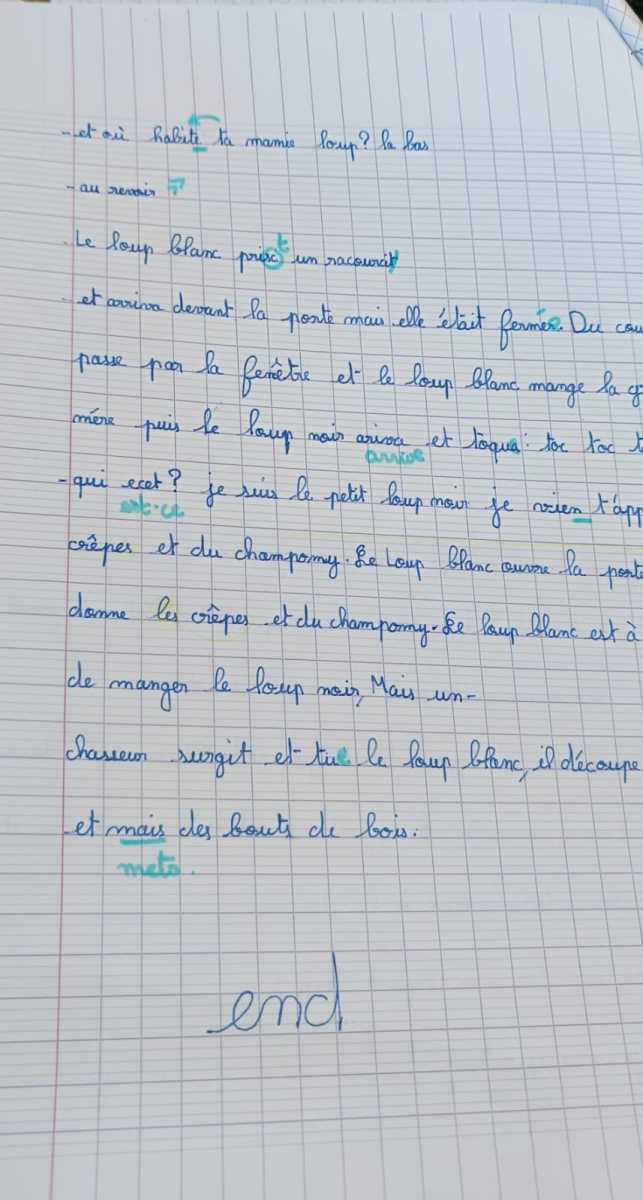 - et où habite ta mamie loup? la bas
- au revoir
Le loup blanc prisct un racourait
et arriva devant la porte mais elle était fermée. Du cou
passe par la fenêtre et le loup blanc mange la g
mére puis le loup noir ariva et toqua: toc toc t
arrive
- qui ecet? je suis le petit loup noir je vien t'app
est-ce
crêpes et du champomy. Le Loup blanc ouvre la porte
donne les crêpes et du champomy. Le loup blanc est à
de manger le loup noir, Mais un-
chasseur surgit et tue le loup blanc, il découpe
et mais des bouts de bois.
mets.
end